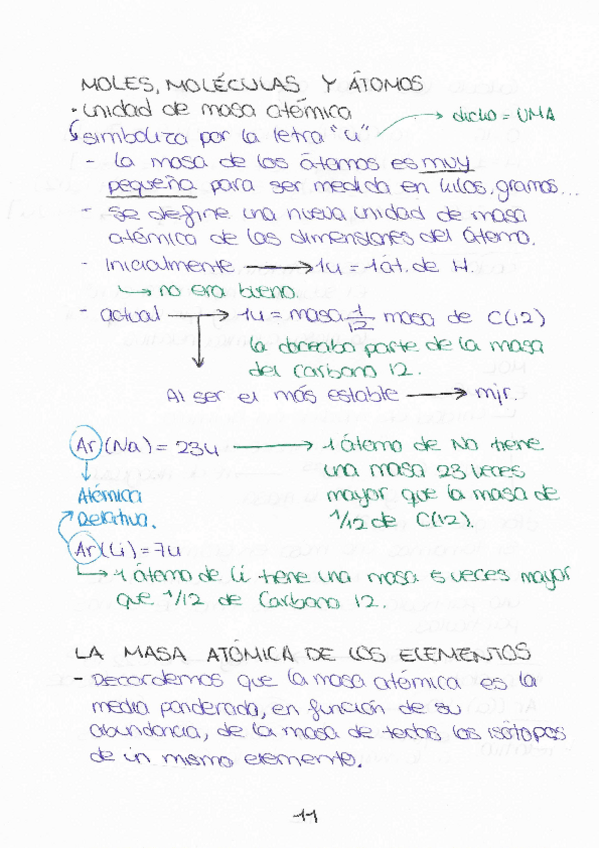 MOLES, MOLÉCULAS Y ÁTOMOS
· unidad de masa atómica → dicho = UMA
simboliza por la letra "u"
- la masa de los átomos es muy
pequeña para ser medida en kilos, gramos...
- Se define una nueva unidad de masa
atómica de las dimensiones del átomo.
- Inicialmente → 1u = 1 át. de H.
↳ no era bueno.
- actual → 1u = masa 1/12 masa de C(12)
la doceaba parte de la masa
del Carbono 12.
Al ser el más estable → mjr.
Ar(Na) = 23u → 1 átomo de Na tiene
una masa 23 veces
Atómica mayor que la masa de
Relativa. 1/12 de C(12).
Ar(Li) = 7u
↳ 1 átomo de Li tiene una masa 6 veces mayor
que 1/12 de Carbono 12.
LA MASA ATÓMICA DE LOS ELEMENTOS
- Recordemos que la masa atómica es la
media ponderada, en función de su
abundancia, de la masa de todos los isótopos
de un mismo elemento.
-11